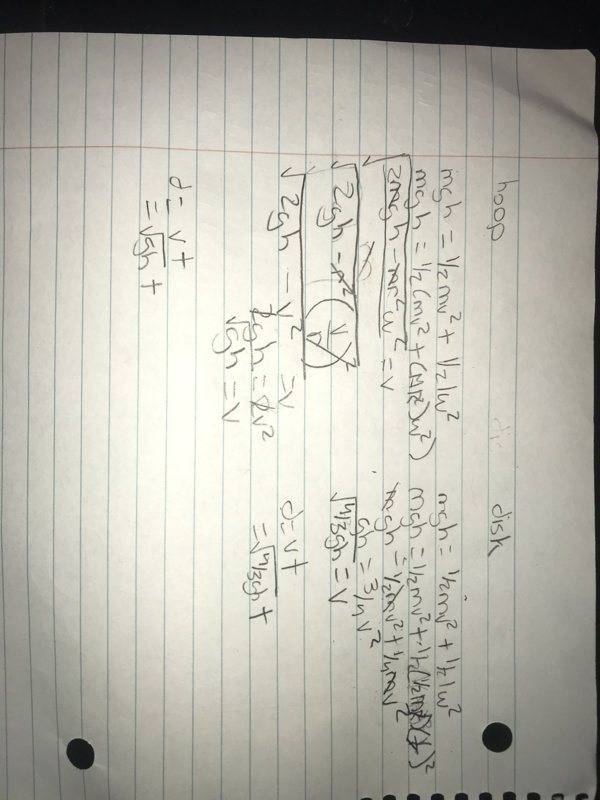 hoop
mgh = 1/2 mv² + 1/2 Iw²
mgh = 1/2 (mv² + (MR²)w²)
√2mgh - mr²w² = v
m
√2gh - r² (v/r)²
√2gh - v² = v
2gh = 2v²
√gh = v
d = vt
= √gh t
disk
mgh = 1/2 mv² + 1/2 Iw²
mgh = 1/2 mv² + 1/2 (1/2 mr²)(v/r)²
mgh = 1/2 mv² + 1/4 mv²
gh = 3/4 v²
√4/3gh = v
d = vt
= √4/3gh t